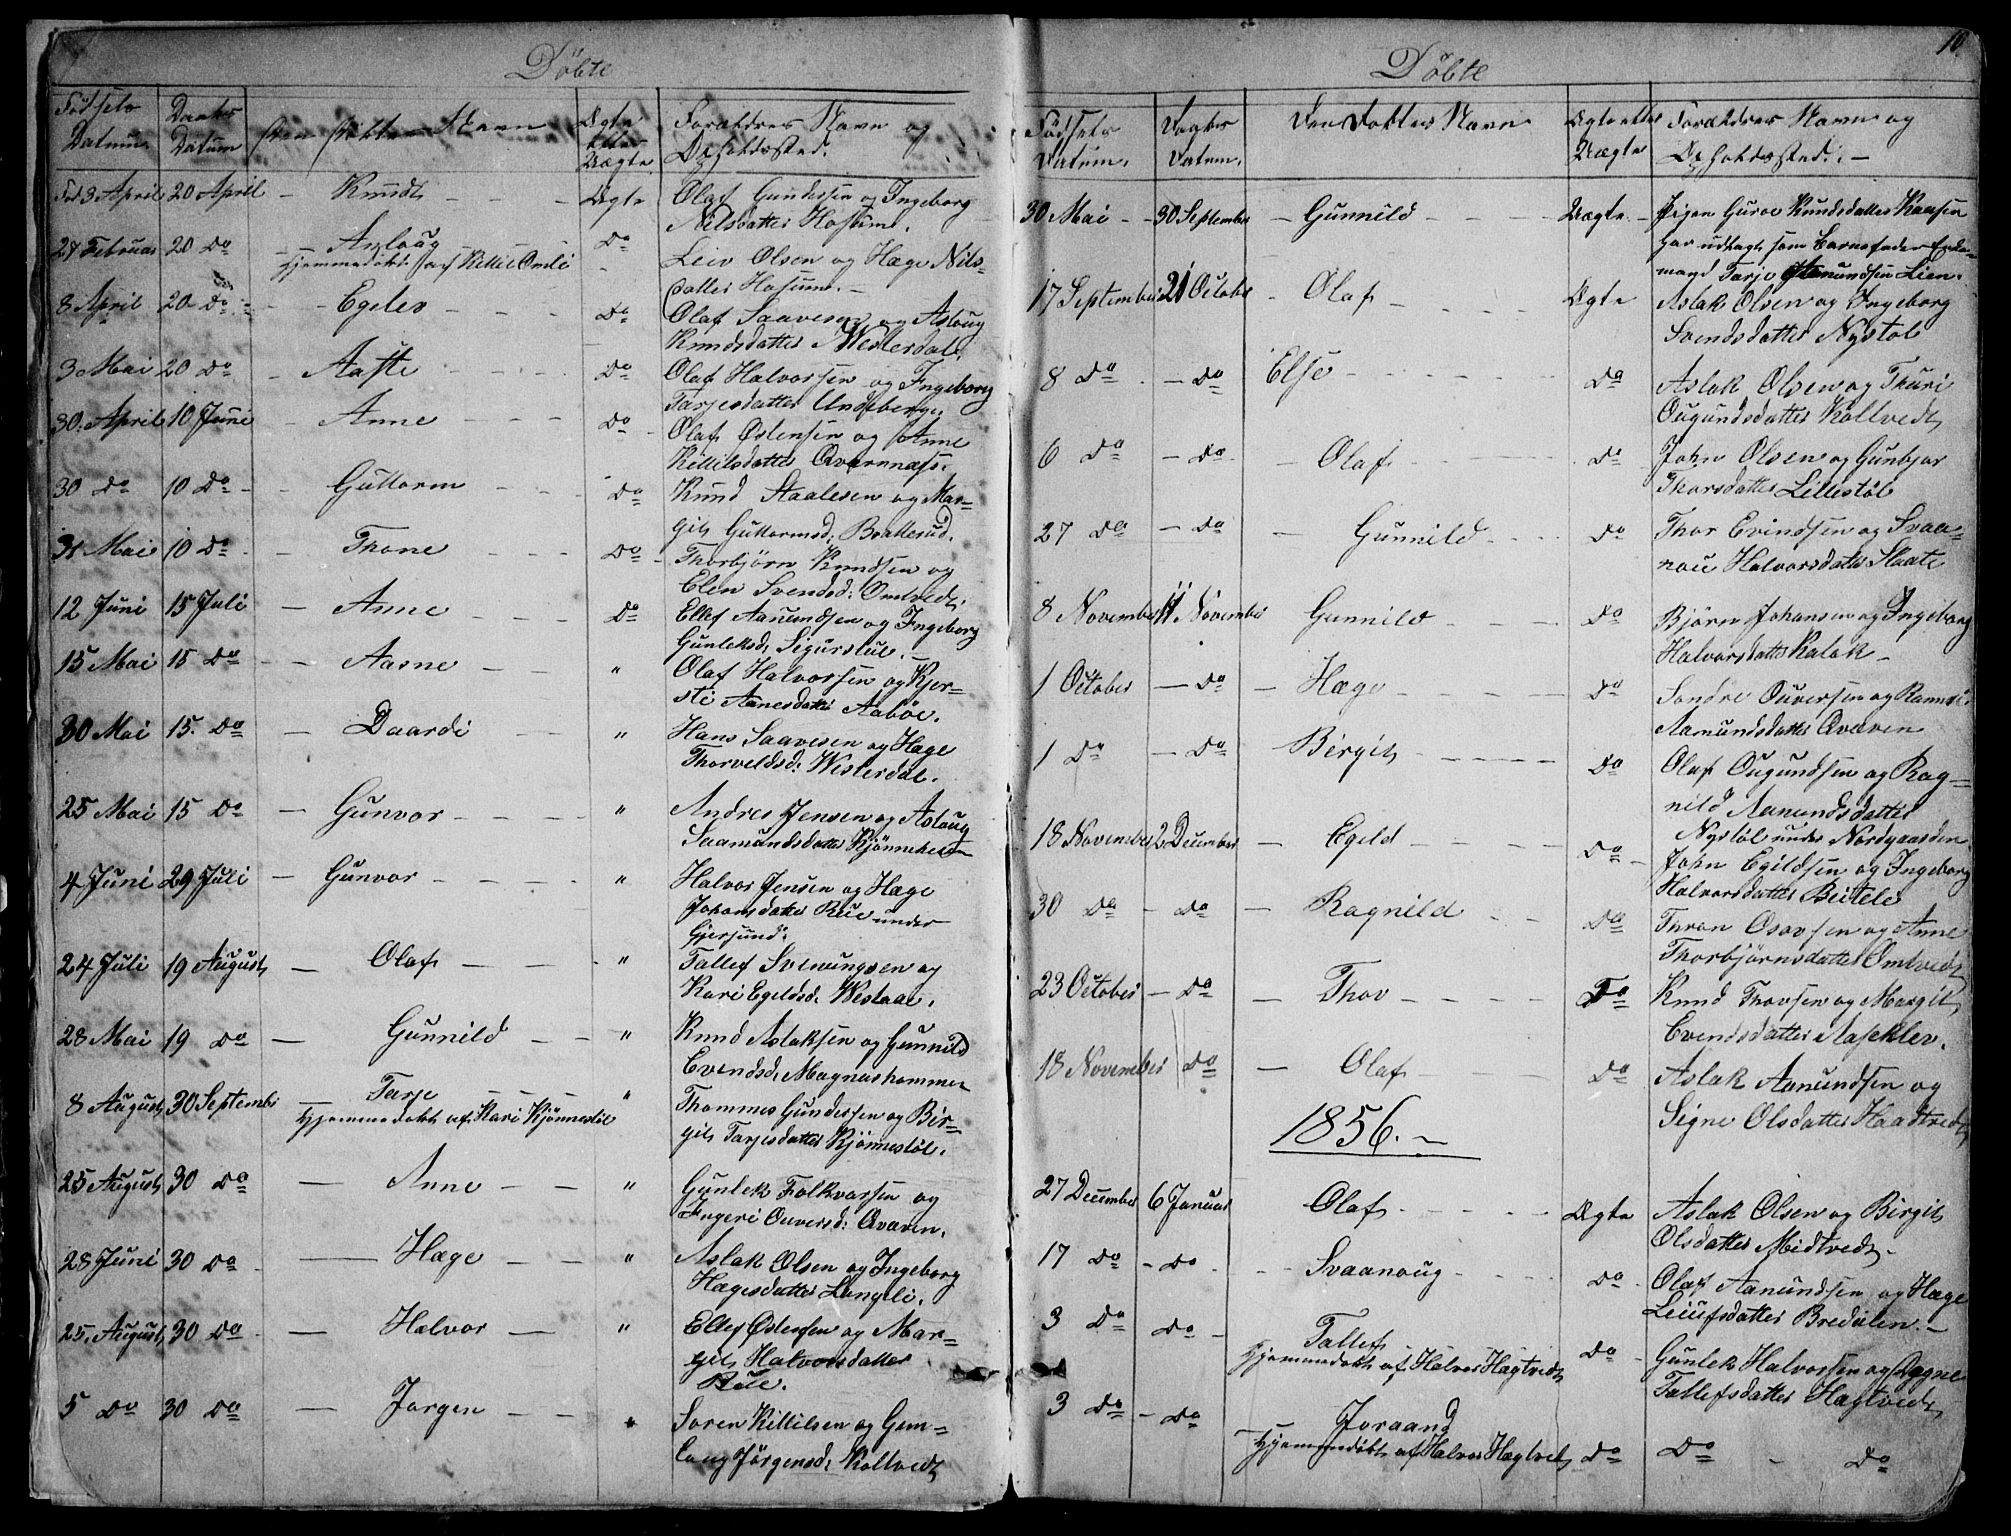 Döbte
Födsels Datum. Daabs Datum Den Döbtes Navn Ægte eller Uægte Forældres Navn og Opholdssted.
Föd 3 April 20 April - Knudt - - - Ægte Olaf Gundersen og Ingeborg
Nilsdatter Hosume.
27 Februar 20 Do - Asloug Do Leiv Olsen og Hæge Nils-
Hjemmedöbt af Kittil Omli datter Hosum. -
8 April 20 Do - Egelev - - - Do Olaf Saavesen og Asloug
Knudsdatter Westerdal.
3 Mai 20 Do - Aaste - - - Do Olaf Halvorsen og Ingeborg
Tarjesdatter Undeberge
30. April 10 Juni - Anne - - - Do Olaf Østensen og Anne
Kittilsdatter Qvarnnæs.
30 Do 10 Do - Guttorm - - - Do Knud Staalesen og Mar-
git Guttormsd: Brattesud.
31 Mai 10 Do - Thone - - - Do Thorbjörn Knudsen og
Elen Svendsd: Omtvedt.
12 Juni 15 Juli - Anne - - - Do Ellef Aanundsen og Ingeborg
Gunleksd: Sigurstul. -
15 Mai 15 Do - Aasne - - " Olaf Halvorsen og Kjer-
sti Aanesdatter Aaböe.
30 Mai 15. Do - Daardi " Hans Saavesen og Hæge
Thorveldsd: Westerdal.
25 Mai 15 Do - Gunvor - - - " Andres Jensen og Asloug
Saamundsdatter
4 Juni 29 Juli - Gunvor - - - " Halvor Jensen og Hæge
Johansdatter Rue under
Gjersund:
24 Juli 19 August - Olaf - - - " Tallef Svenungsen og
Kari Egeldsd: Westaae.
28 Mai 19 Do - Gunnild - - " Knud Aslaksen og Gunnild
Evendsd: Magnushommen
8 August 30 September - Tarje - - " Thommes Gundersen og Bir-
Hjemmedöbt af Kari Kjönnestöl git Tarjesdatter Kjönnestöl.
25 August 30 Do - Anne - - " Gunlek Folkvarsen og
Ingeri Ouversd: Qvaven.
28 Juni 30 Do - Hæge - - " Aslak Olsen og Ingeborg
Hægesdatter Langeli.
25. August 30 Do - Halvor - - " Ellef Østensen og Mar-
git Halvorsdatter
Rue.
5 Do 30 Do - Jorgen - - " Soren Kittilsen og Gun-
loug Jörgensd: Koltvedt
Döbte
10
Födsels Datum. Daabs Datum. Den Döbtes Navn Ægte eller Uægte Forældres Navn og Opholdssted. -
30 Mai - 30 September - Gunnild - - - Uægte - Pigen Guroe Knudsdatter Kaasen
har udlagt som Barnefader Enke-
mand Tarje Aanundsen Lien.
17 September 21 October - Olaf - - - Ægte Aslak Olsen og Ingeborg
Svendsdatter Nystöl
8 Do - Do Else - - - Do Aslak Olsen og Thuri
Ougundsdatter Koltvedt
6 Do - Do - Olaf - - - Do John Olsen og Gunbjor
Thorsdatter Lillestöl
27 Do - Do - Gunnild - - - Do Thor Evindsen og Svaa-
nou Halvorsdatter Staate
8 November 11 November Gunnild - - - Do Bjørn Johansen og Ingeborg
Halvorsdatter Kalak -
1 October - Do - Hæge - - - Do Sondre Ouversen og Ranne
Aamundsdatter Qvaven
1 Do - Do - Birgit - - - Do Olaf Ougundsen og Rag-
nild Aanundsdatter
Nystöl under Nordgaarden.
18 November 2 December - Egeld - - - Do - John Egildsen og Ingeborg
Halvorsdatter Beitele
30 Do - Do - Ragnild - - Do Thron Osovsen og Anne
Thorbjörnsdatter Omtvedt
23 October - Do - Thov - - - Do Knud Thovsen og Margit
Evendsdatter Aaseklev.
18 November Do - Olaf - - - Do Aslak Aanundsen og
Signe Olsdatter Haadtvedt
1856. -
27 December 6 Januar Olaf - - - Ægte Aslak Olsen og Birgit
Olsdatter Midtvedt. -
17 Do - Do - - Svaanoug - - - Do Olaf Aanundsen og Hæge
Leiufsdatter Bredalen. -
3 Do Do - Tallef Do - Gunlek Halvorsen og Dagne
Hjemmedöbt af Halvor Hægtvedt Tallefsdatter Hægtvedt
3 Do - Do Joraand
Hjemmedöbt af Halvor Hægtvedt Do Do - Do